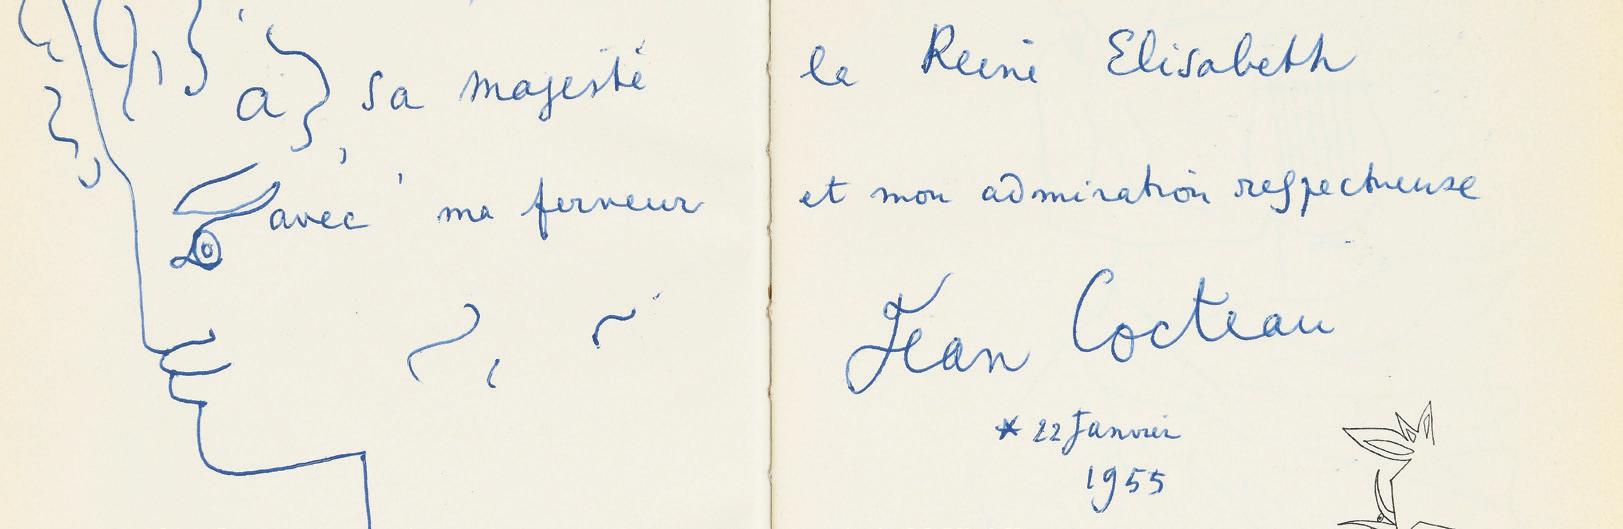 à sa majesté la Reine Elisabeth
avec ma ferveur et mon admiration respectueuse
Jean Cocteau
* 22 Janvier
1955